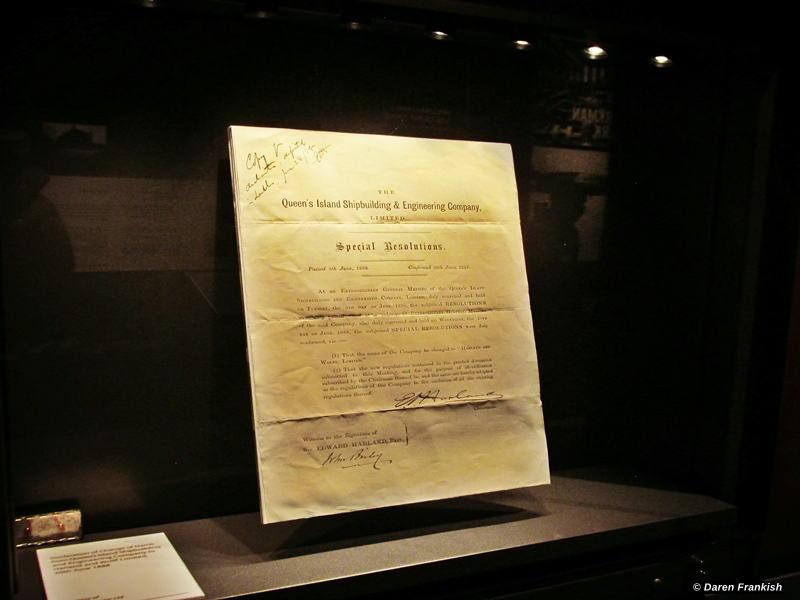 Copy
THE
Queen's Island Shipbuilding & Engineering Company,
LIMITED.
Special Resolutions.
Passed 5th June, 1888. Confirmed 20th June, 1888.
At an Extraordinary General Meeting of the Queen's Island
Shipbuilding and Engineering Company, Limited, duly convened and held
on Tuesday, the 5th day of June, 1888, the subjoined RESOLUTIONS
of the said Company, also duly convened and held on Wednesday, the 20th
day of June, 1888, the subjoined SPECIAL RESOLUTIONS were duly
confirmed, viz.:—
(1) That the name of the Company be changed to "Harland and
Wolff, Limited."
(2) That the new regulations contained in the printed document
submitted to this Meeting, and for the purpose of identification
subscribed by the Chairman thereof, be, and the same are hereby adopted
as the regulations of the Company to the exclusion of all the existing
regulations thereof.
E J Harland
Chairman.
Witness to the Signature of
Sir EDWARD HARLAND, Bart.,
John Bailey
Declaration of Change of Name
from Queen's Island Shipbuilding
and Engineering Company to
Harland and Wolff Limited,
20th June 1888
© Daren Frankish